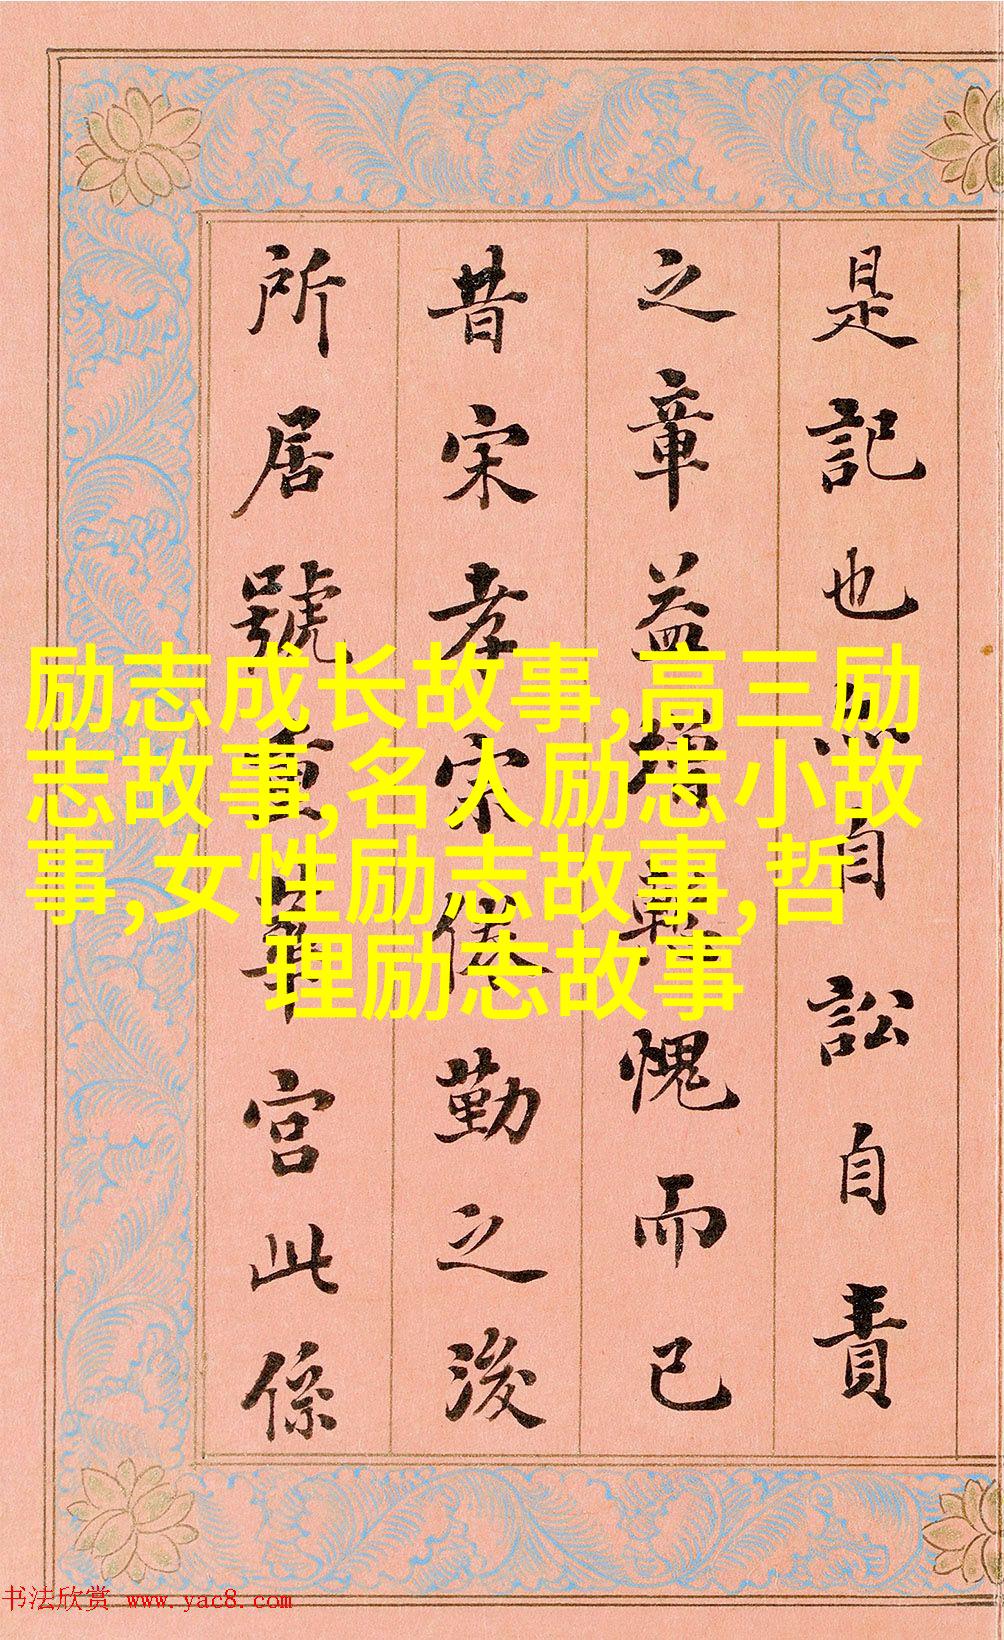 是記也自訟自責
之章益增愧而已
昔宋孝宗倦勤之後
所居號重華宮此係
励志成长故事,高三励
志故事,名人励志小故
事,女性励志故事,哲
理励志故事
书法欣赏 www.yac8.com